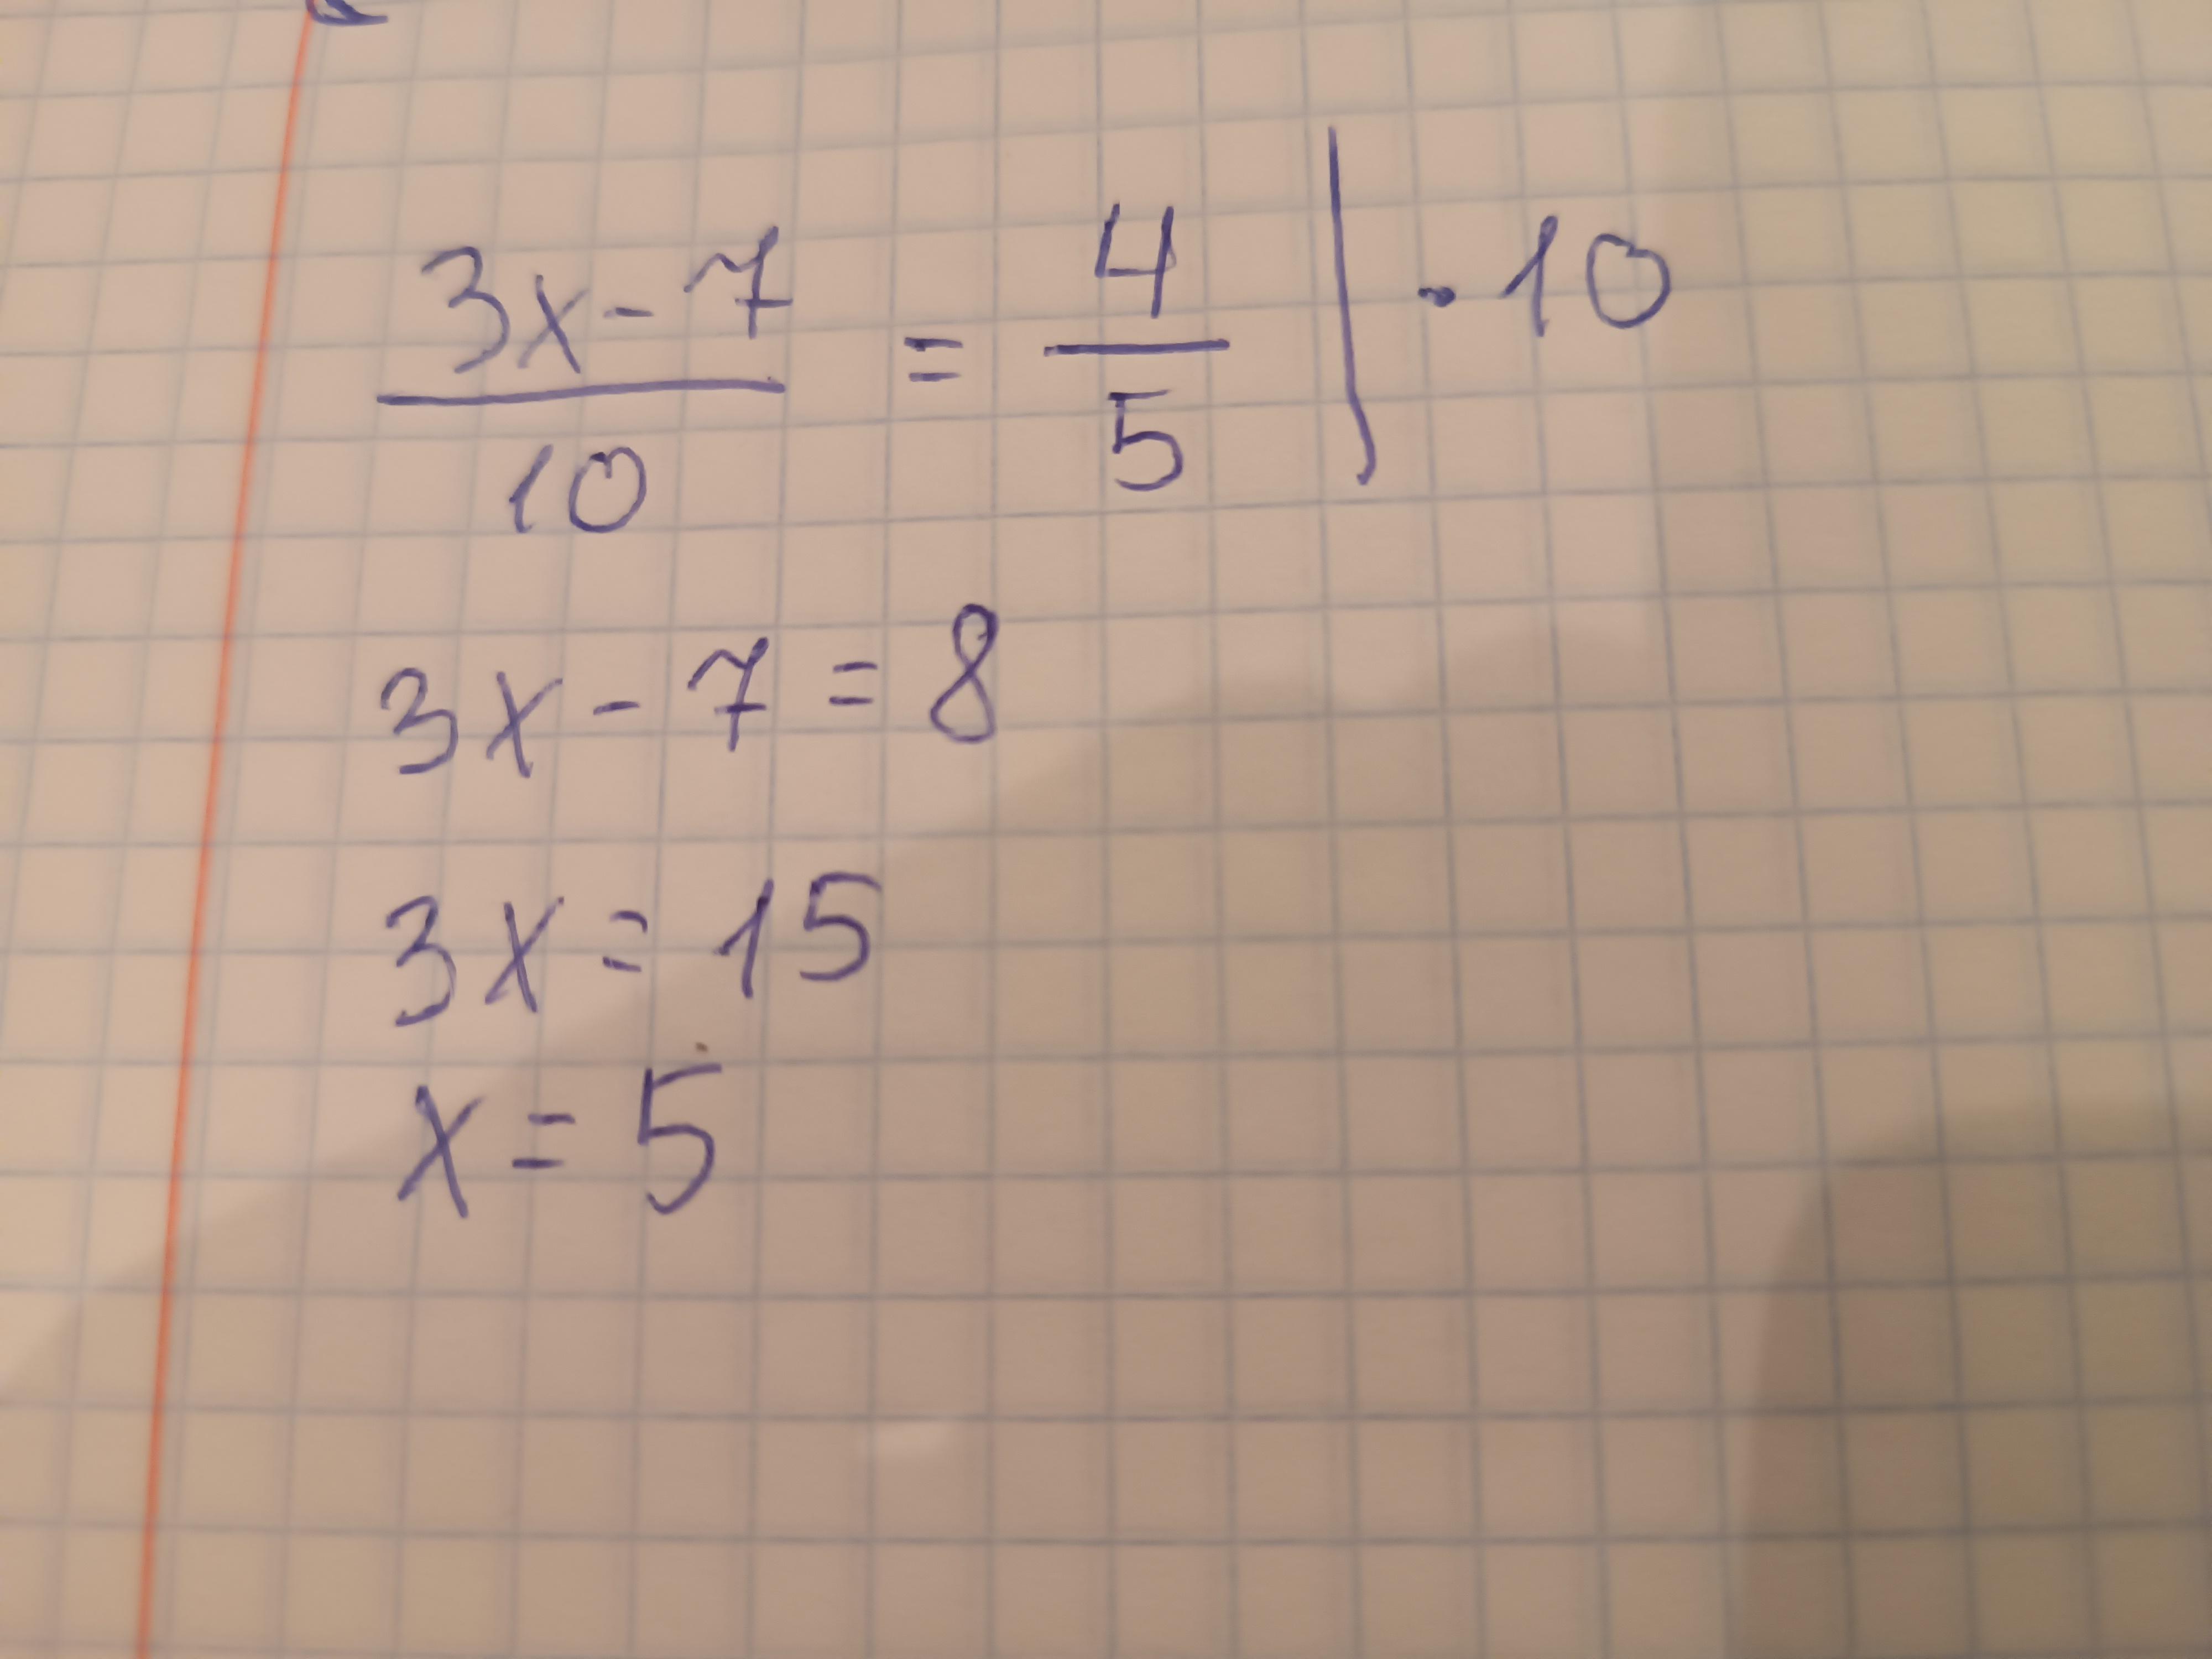 (3x-7)/10 = 4/5 | · 10
3x - 7 = 8
3x = 15
x = 5